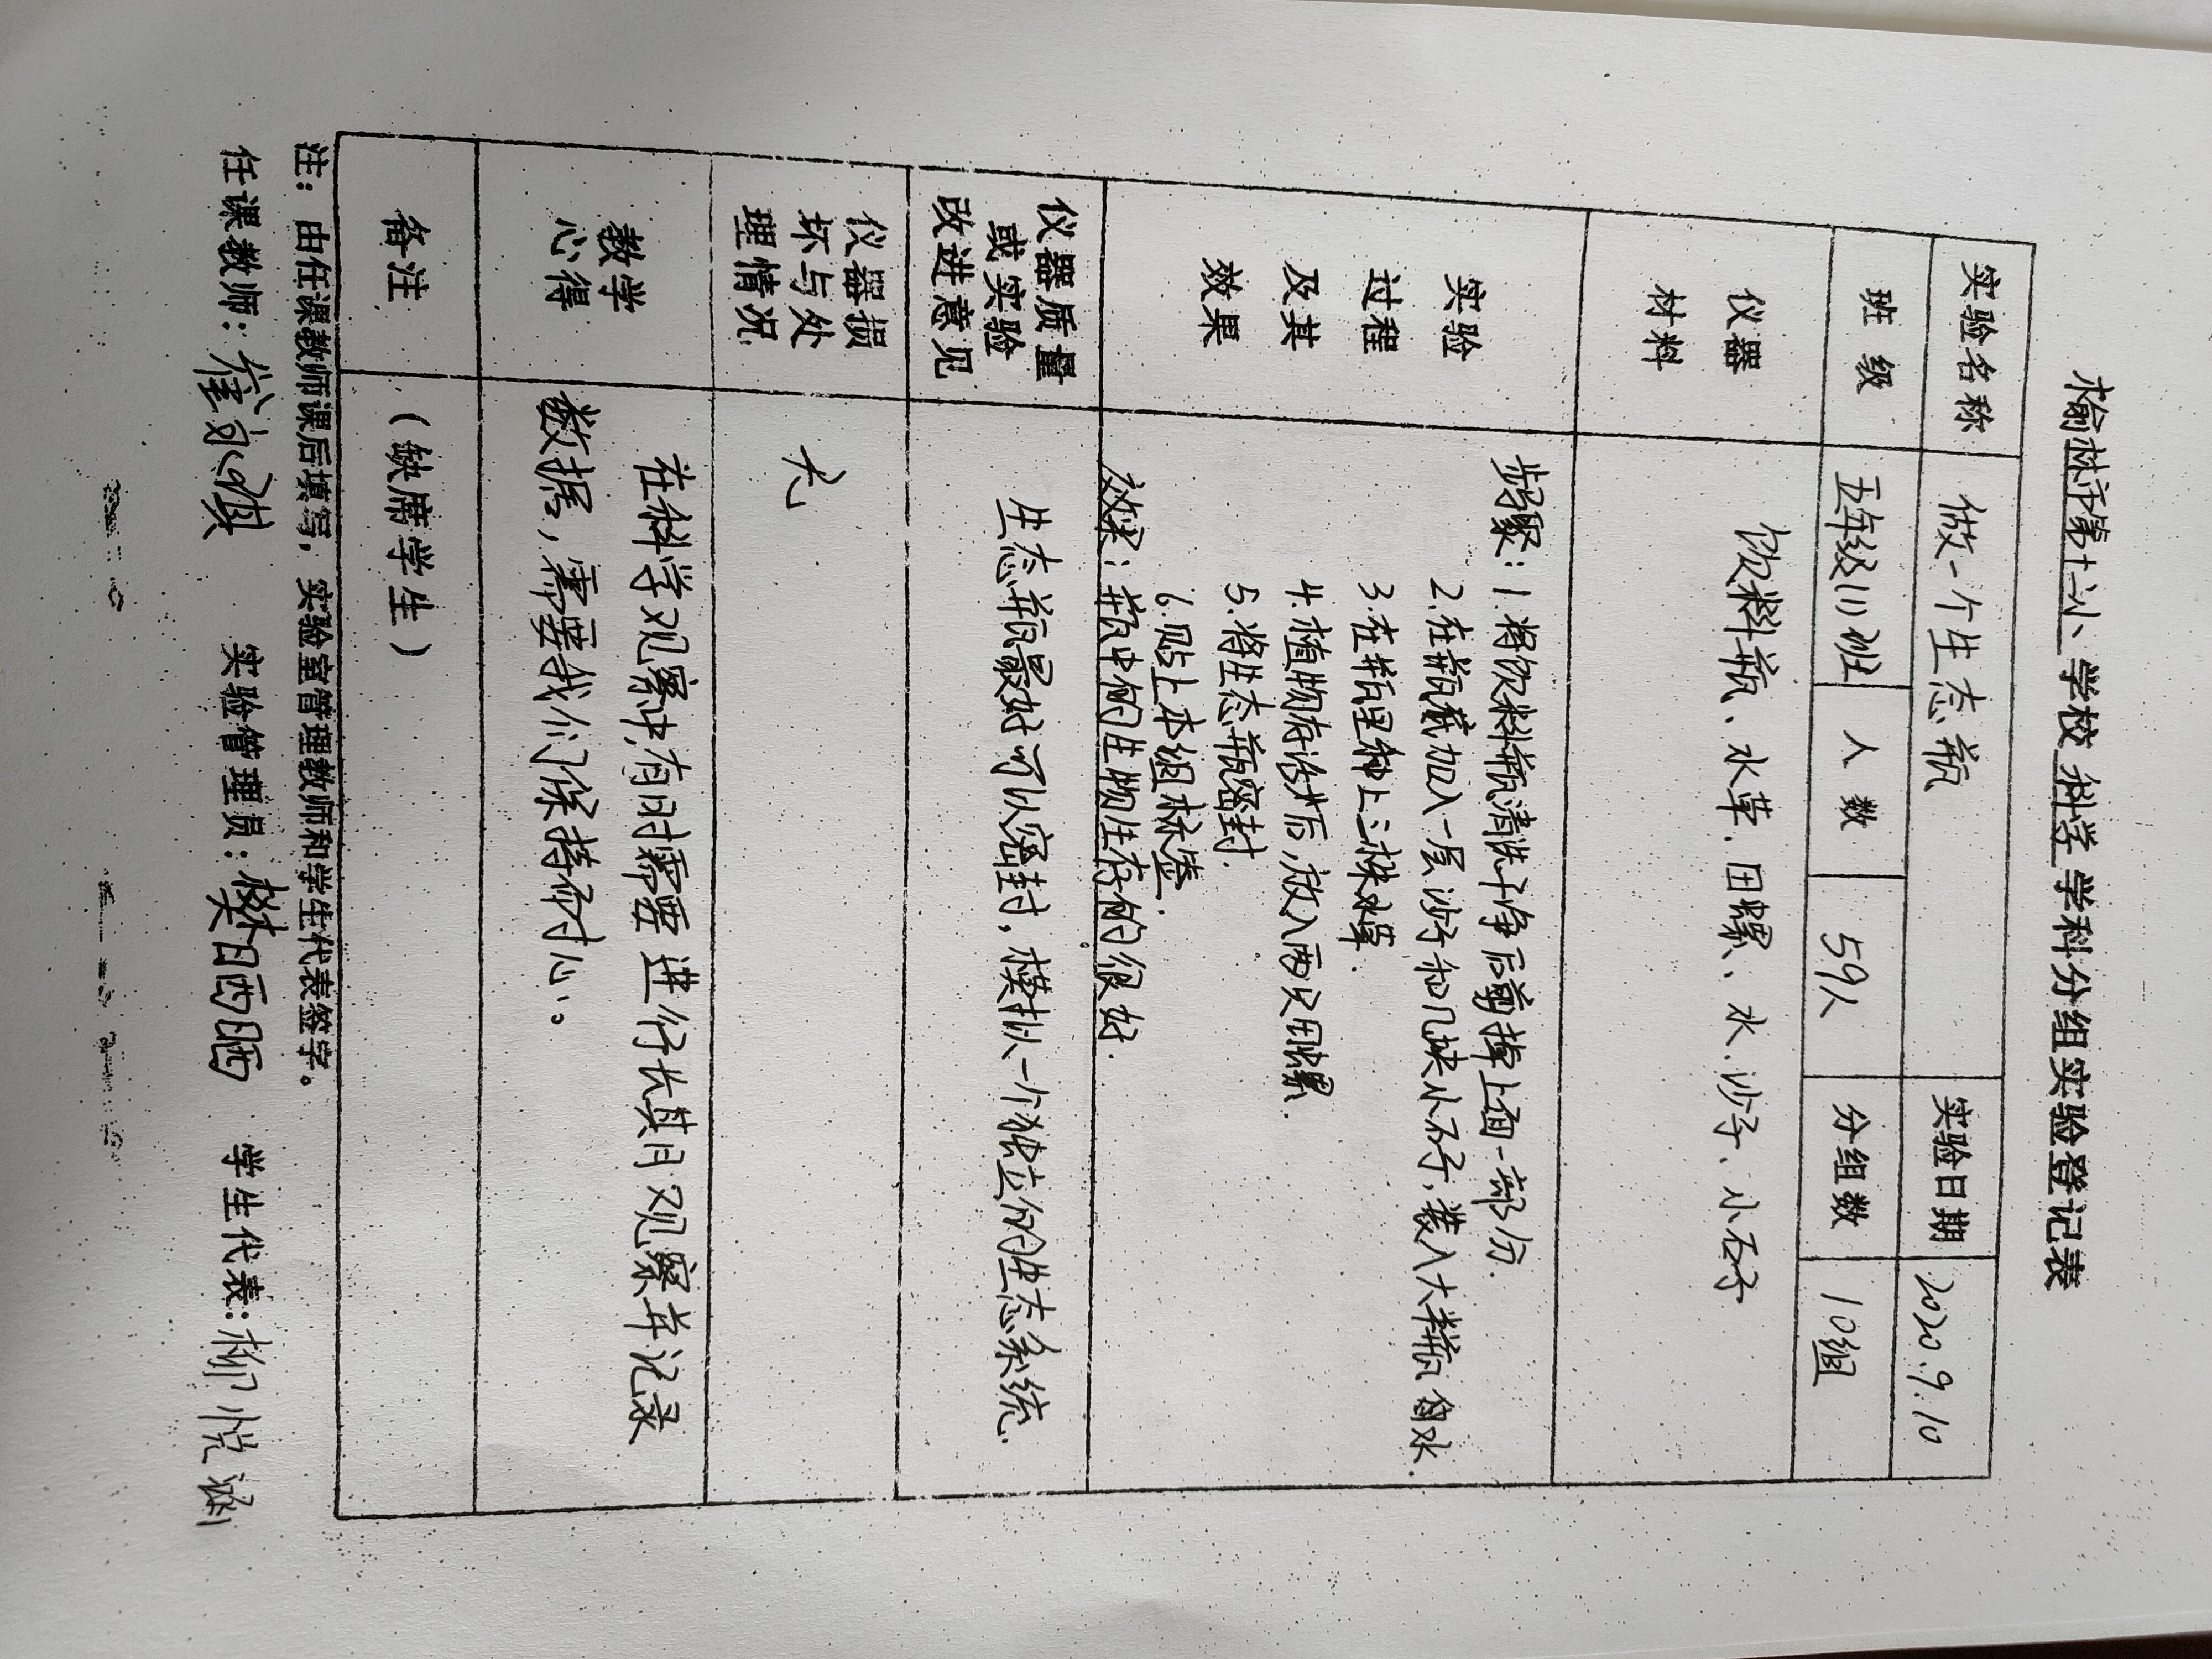 榆林市第十小学校科学学科分组实验登记表
实验名称 做一个生态瓶 实验日期 2020.9.10
班级 五年级(1)班 人数 59人 分组数 10组
仪器材料 饮料瓶、水草、田螺、水、沙子、小石子
实验过程及其效果
步骤:1.将饮料瓶清洗干净后剪掉上面一部分.
2.在瓶底加入一层沙子和几块小石子,装入大半瓶的水.
3.在瓶里种上三株水草.
4.植物存活后,放入两只田螺.
5.将生态瓶密封.
6.贴上本组标签.
效果:瓶中的生物生存的很好.
仪器质量或实验改进意见
生态瓶最好可以密封,模拟一个独立的生态系统.
仪器损坏与处理情况 无
教学心得
在科学观察中,有时需要进行长期观察并记录
数据,需要我们保持耐心。
备注 (缺席学生)
注:由任课教师课后填写,实验室管理教师和学生代表签字。
任课教师: 实验管理员: 学生代表:柳悦涵